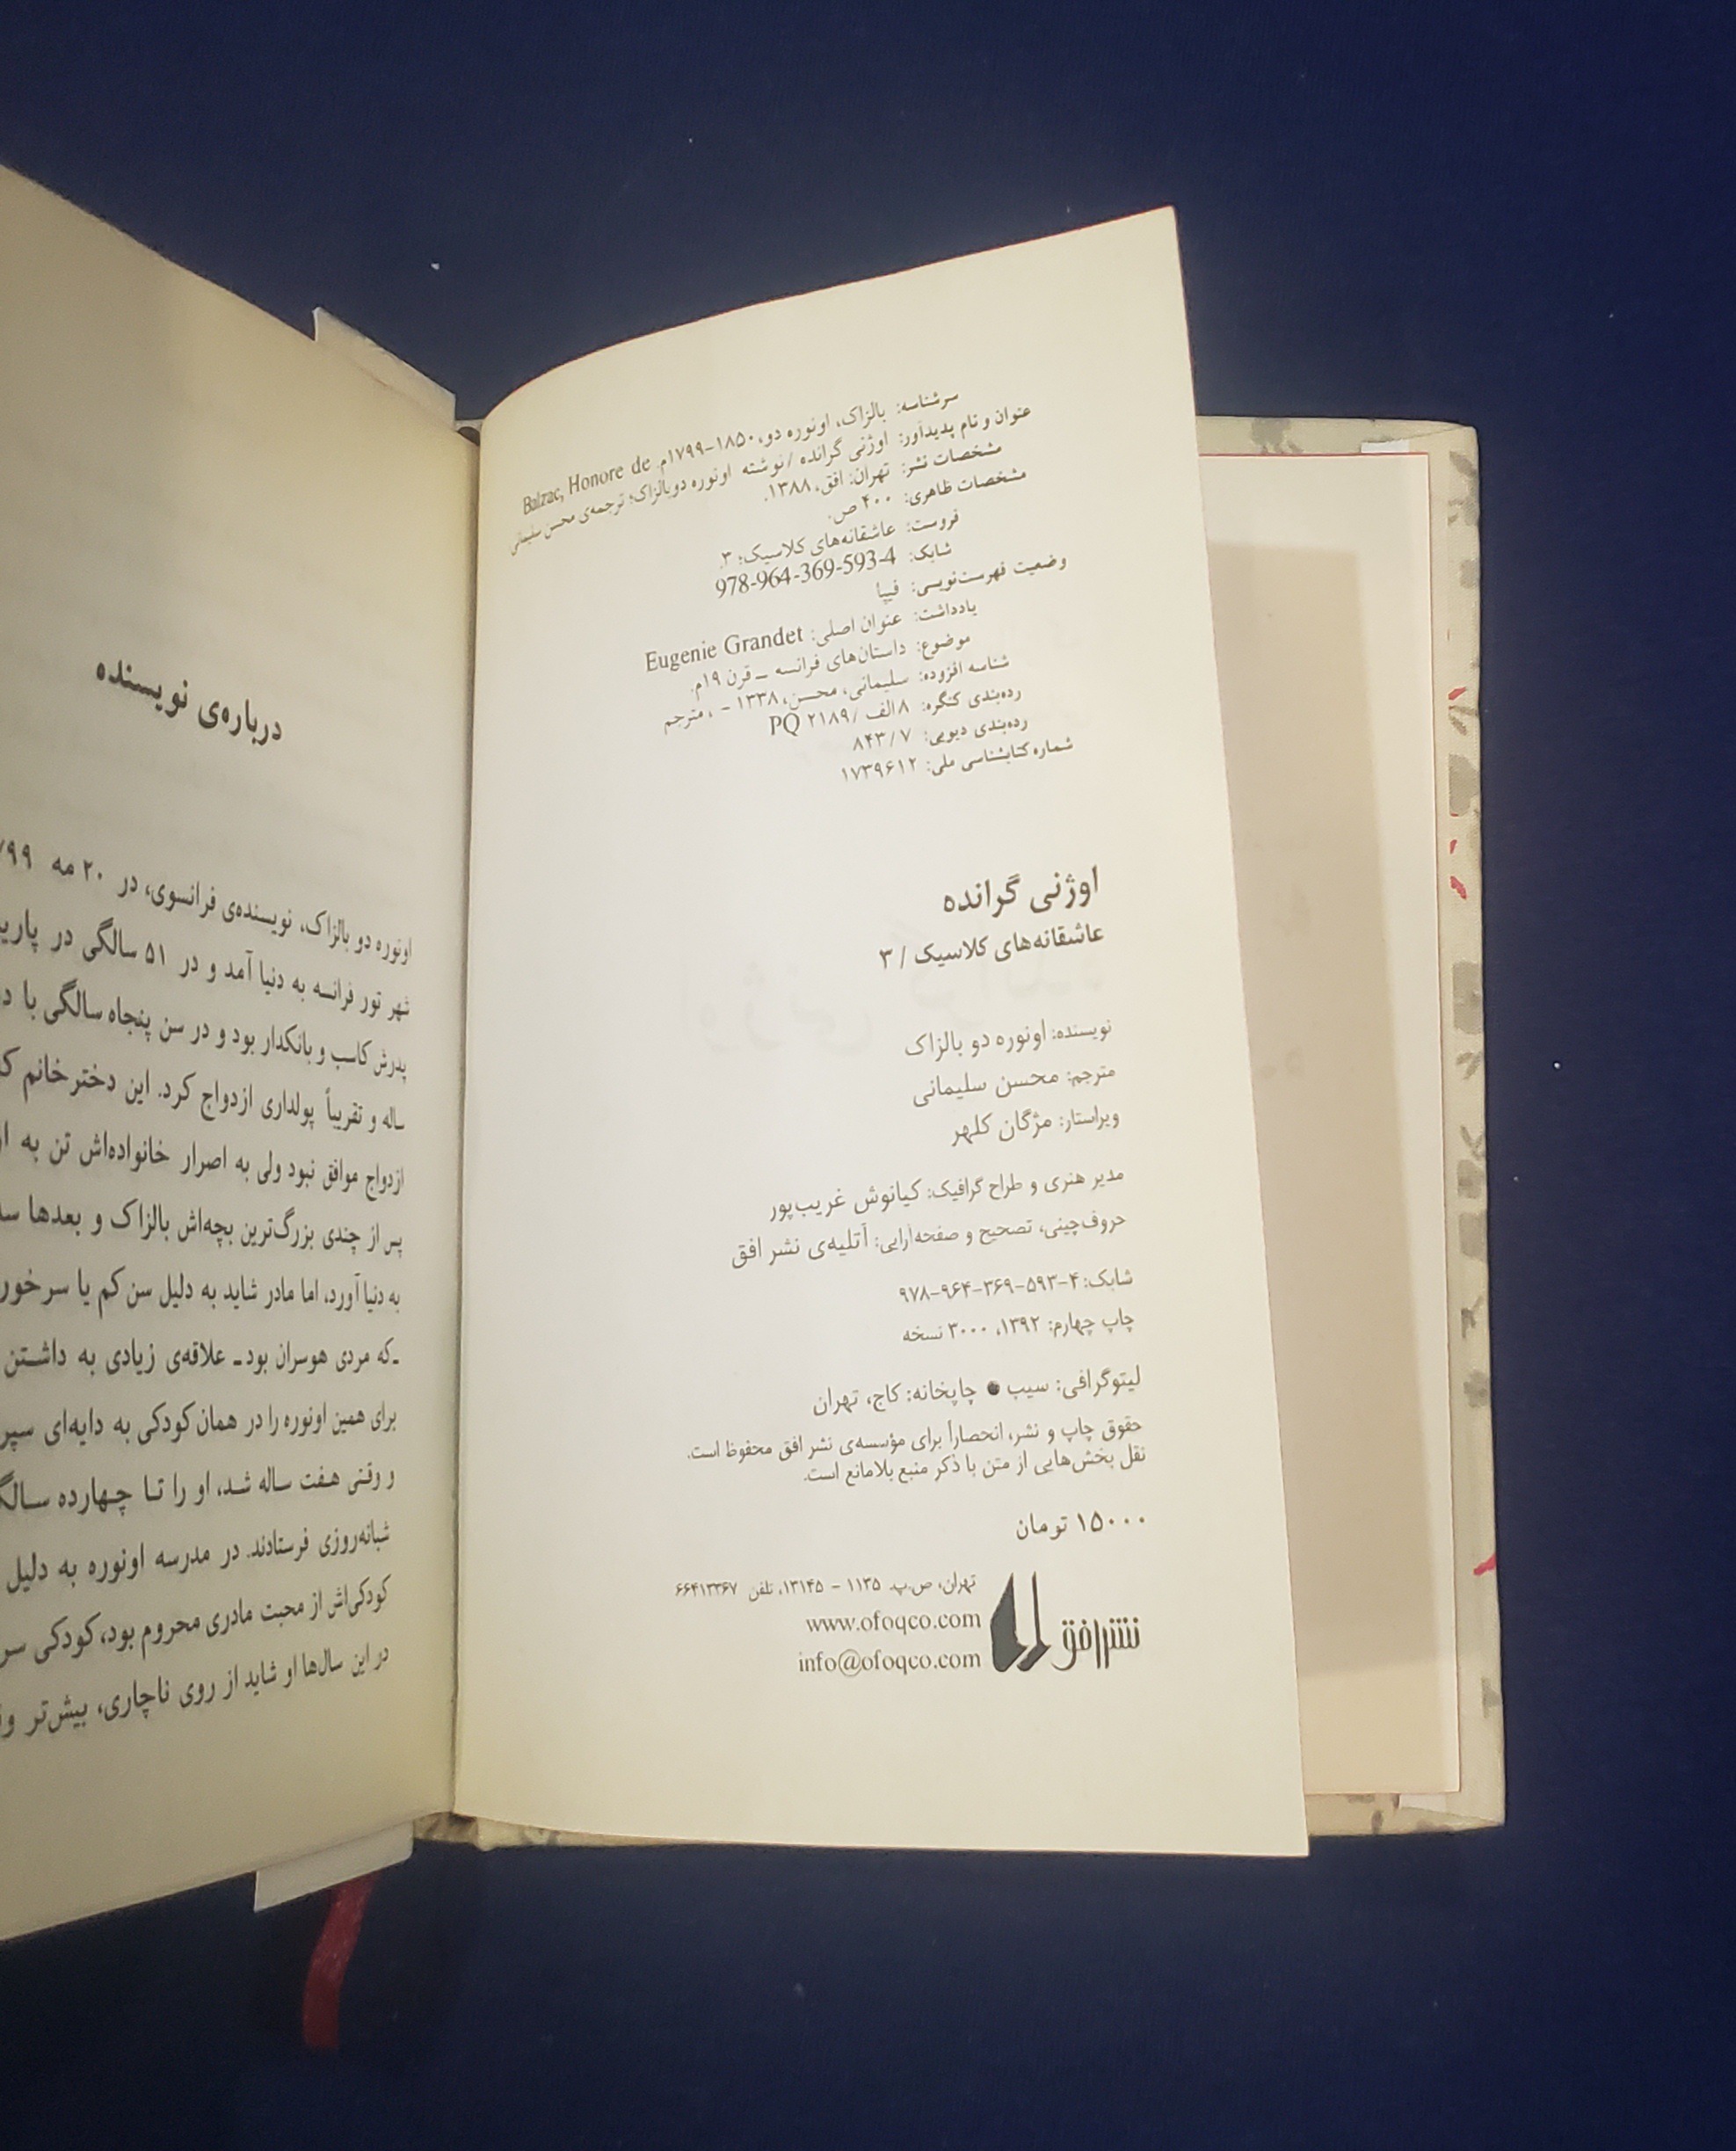 سرشناسه: بالزاک، اونوره دو، ۱۸۵۰-۱۷۹۹م. Balzac, Honore de
عنوان و نام پدیدآور: اوژنی گرانده / نوشته اونوره دوبالزاک؛ ترجمه‌ی محسن سلیمانی
مشخصات نشر: تهران: افق، ۱۳۸۸.
مشخصات ظاهری: ۴۰۰ ص.
فروست: عاشقانه‌های کلاسیک؛ ۳.
شابک: 978-964-369-593-4
وضعیت فهرست‌نویسی: فیپا
یادداشت: عنوان اصلی: Eugenie Grandet
موضوع: داستان‌های فرانسه ــ قرن ۱۹م.
شناسه افزوده: سلیمانی، محسن، ۱۳۳۸ - ، مترجم
رده‌بندی کنگره: ۸الف / ۲۱۸۹ PQ
رده‌بندی دیویی: ۸۴۳/۷
شماره کتابشناسی ملی: ۱۷۳۹۶۱۲
اوژنی گرانده
عاشقانه‌های کلاسیک / ۳
نویسنده: اونوره دو بالزاک
مترجم: محسن سلیمانی
ویراستار: مژگان کلهر
مدیر هنری و طراح گرافیک: کیانوش غریب‌پور
حروف‌چینی، تصحیح و صفحه‌آرایی: آتلیه‌ی نشر افق
شابک: ۴-۵۹۳-۳۶۹-۹۶۴-۹۷۸
چاپ چهارم: ۱۳۹۲، ۳۰۰۰ نسخه
لیتوگرافی: سیب ● چاپخانه: کاج، تهران
حقوق چاپ و نشر، انحصاراً برای مؤسسه‌ی نشر افق محفوظ است.
نقل بخش‌هایی از متن با ذکر منبع بلامانع است.
۱۵۰۰۰ تومان
نشر افق
تهران، ص.پ. ۱۱۳۵ - ۱۳۱۴۵، تلفن ۶۶۴۱۳۳۶۷
www.ofoqco.com
info@ofoqco.com
درباره‌ی نویسنده
اونوره دو بالزاک، نویسنده‌ی فرانسوی، در ۲۰ مه
شهر تور فرانسه به دنیا آمد و در ۵۱ سالگی در
پدرش کاسب و بانکدار بود و در سن پنجاه سالگی با
ساله و تقریباً پولداری ازدواج کرد. این دخترخانم
ازدواج موافق نبود ولی به اصرار خانواده‌اش تن به
پس از چندی بزرگ‌ترین بچه‌اش بالزاک و بعدها
به دنیا آورد، اما مادر شاید به دلیل سن کم یا
ـ که مردی هوسران بود ـ علاقه‌ی زیادی به داشتن
برای همین اونوره را در همان کودکی به دایه‌ای
و وقتی هفت ساله شد، او را تا چهارده
شبانه‌روزی فرستادند. در مدرسه اونوره به دلیل
کودکی‌اش از محبت مادری محروم بود، کودکی
در این سال‌ها او شاید از روی ناچاری، بیش‌تر